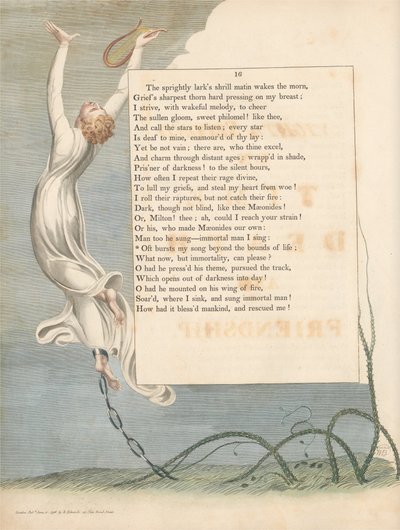 16
The sprightly lark's shrill matin wakes the morn,
Grief's sharpest thorn hard pressing on my breast;
I strive, with wakeful melody, to cheer
The sullen gloom, sweet philomel! like thee,
And call the stars to listen; every star
Is deaf to mine, enamour'd of thy lay:
Yet be not vain; there are, who thine excel,
And charm through distant ages; wrapp'd in shade,
Pris'ner of darkness! to the silent hours,
How often I repeat their rage divine,
To lull my griefs, and steal my heart from woe!
I roll their raptures, but not catch their fire:
Dark, though not blind, like thee Mæonides!
Or, Milton! thee; ah, could I reach your strain!
Or his, who made Mæonides our own:
Man too he sung—immortal man I sing:
* Oft bursts my song beyond the bounds of life;
What now, but immortality, can please?
O had he press'd his theme, pursued the track,
Which opens out of darkness into day!
O had he mounted on his wing of fire,
Soar'd, where I sink, and sung immortal man!
How had it bless'd mankind, and rescued me!
FRIENDSHIP